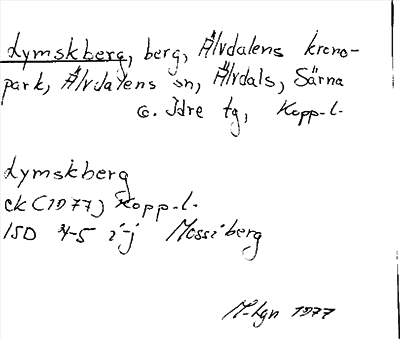 Lymskberg, berg, Älvdalens krono-
park, Älvdalens sn, Älvdals, Särna
o. Idre tg, Kopp.l.
Lymskberg
ek (1977) Kopp.l.
15D 4-5 i-j Mossiberg
M-hgn 1977